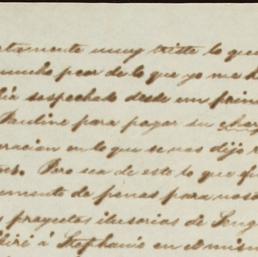 muy triste lo que
mucho peor de lo que yo me h
sospechado desde un prin
Pauline para pagar su
racion en lo que se nos dijo
Pero sea de esto lo que f
de penas para nos
proyectos ilusorios de
á Stephanie en el mism